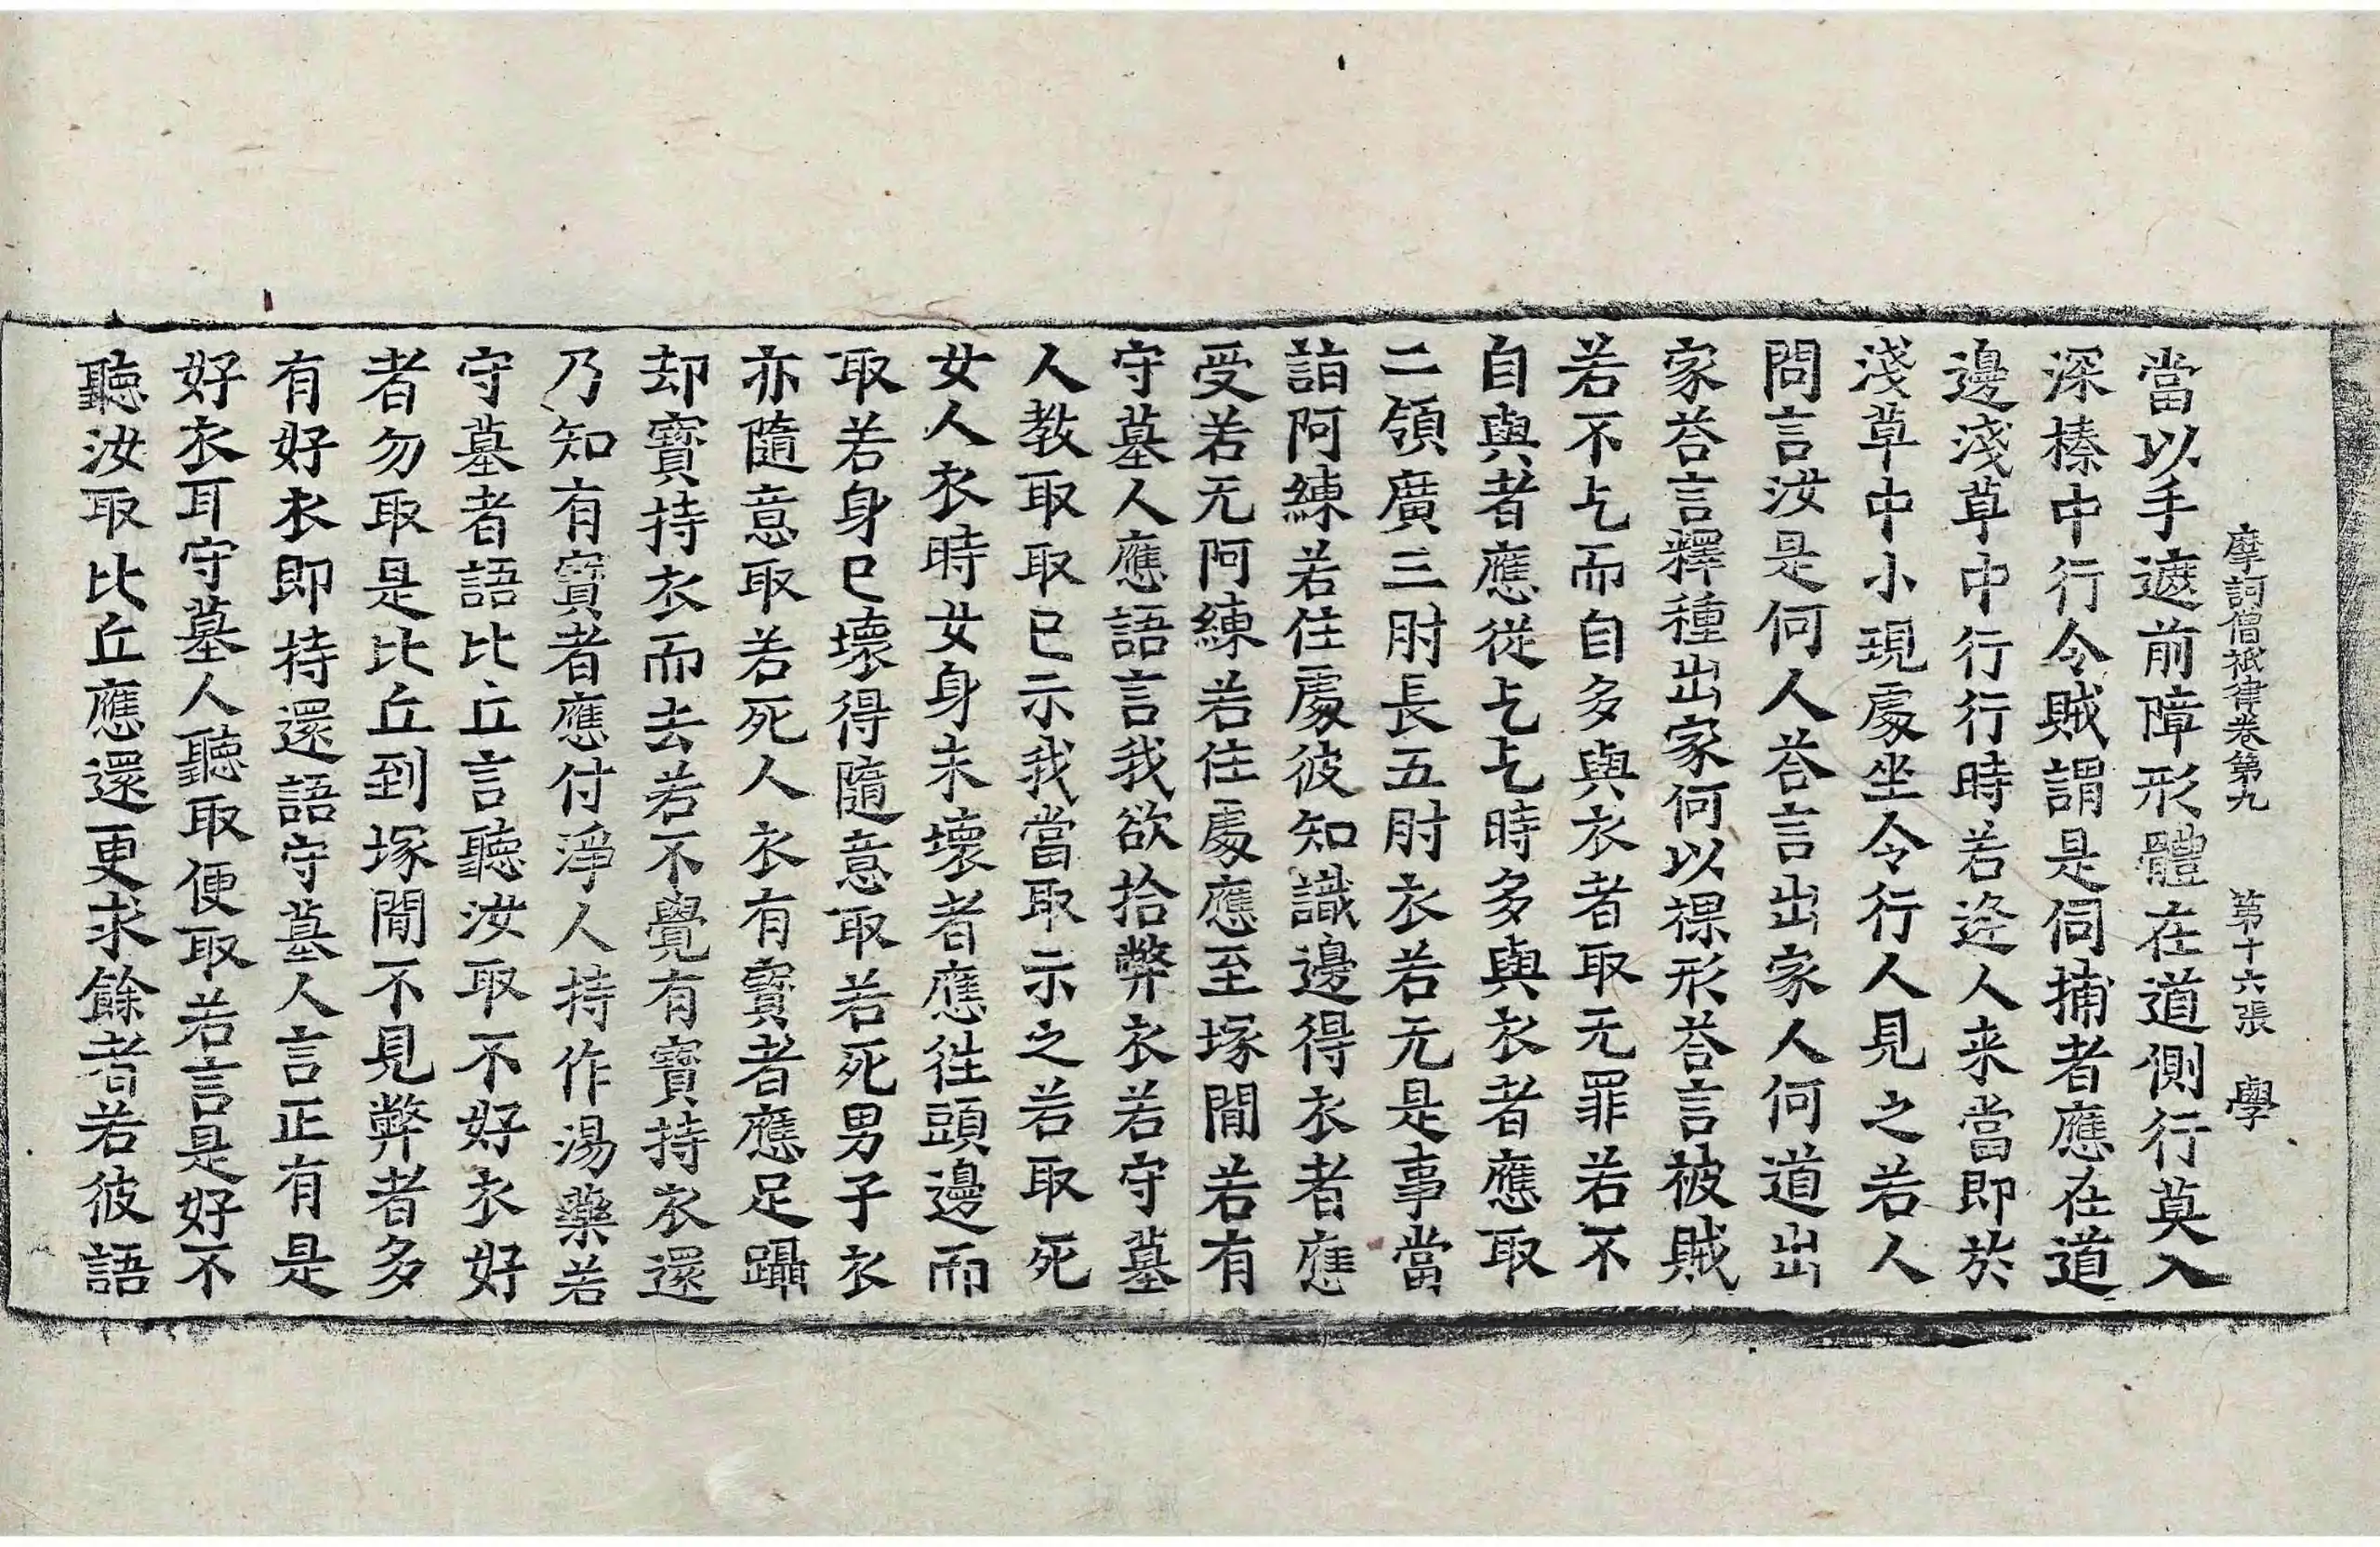 摩訶僧祇律卷第九　第十六張　學
當以手遮前障形體在道側行莫入
深榛中行令賊謂是伺捕者應在道
邊淺草中行行時若逆人来當即於
淺草中小現處坐令行人見之若人
問言汝是何人荅言出家人何道出
家荅言釋種出家何以裸形荅言被賊
若不乞而自多與衣者取无罪若不
自與者應從乞乞時多與衣者應取
二領廣三肘長五肘衣若无是事當
詣阿練若住處彼知識邊得衣者應
受若无阿練若住處應至塚閒若有
守墓人應語言我欲拾弊衣若守墓
人教取取已示我當取示之若取死
女人衣時女身未壞者應往頭邊而
取若身已壞得隨意取若死男子衣
亦隨意取若死人衣有寶者應足躡
却寶持衣而去若不覺有寶持衣還
乃知有寶者應付淨人持作湯藥若
守墓者語比丘言聽汝取不好衣好
者勿取是比丘到塚閒不見弊者多
有好衣即持還語守墓人言正有是
好衣耳守墓人聽取便取若言是好不
聽汝取比丘應還更求餘者若彼語